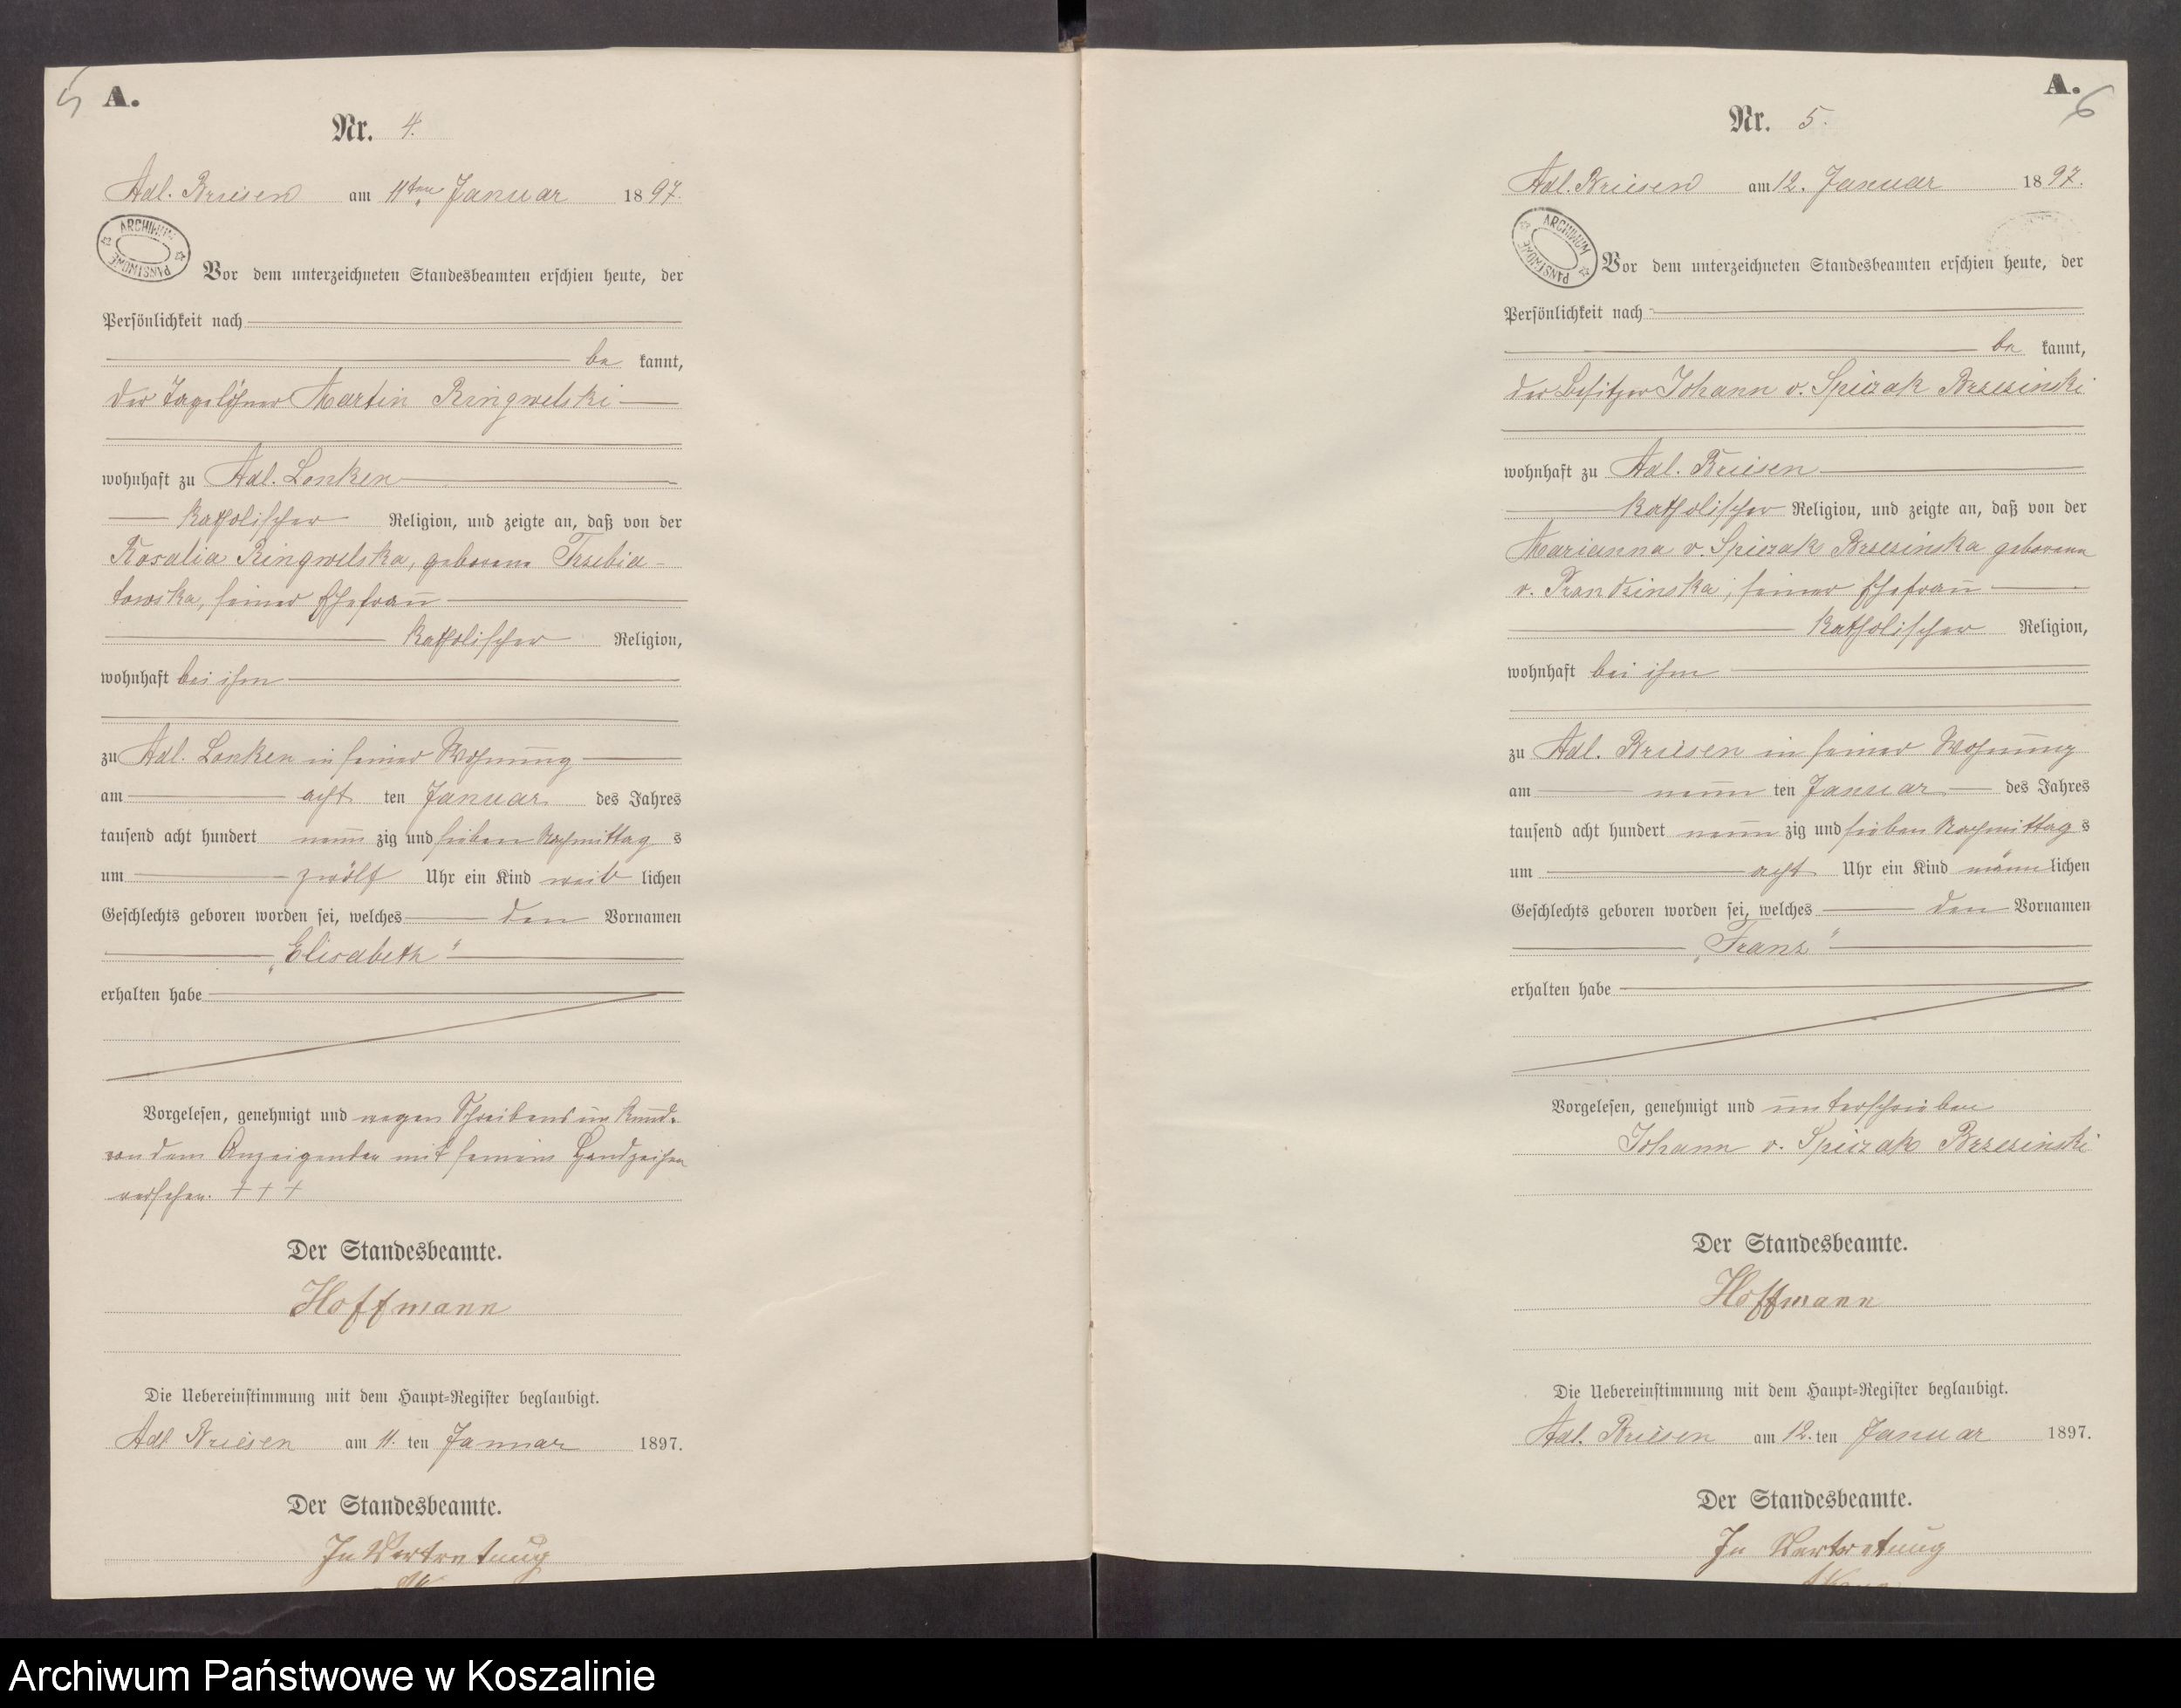 5
A.
Nr. 4.
Adl. Briesen am 11ten Januar 1897.
ARCHIWUM PAŃSTWOWE
Vor dem unterzeichneten Standesbeamten erschien heute, der
Persönlichkeit nach
be kannt,
der Tagelöhner Martin Ringwelski
wohnhaft zu Adl. Lonken
katholischer Religion, und zeigte an, daß von der
Rosalia Ringwelska, geborene Trzebia-
towska, seiner Ehefrau
katholischer Religion,
wohnhaft bei ihm
zu Adl. Lonken in seiner Wohnung
am acht ten Januar des Jahres
tausend acht hundert neun zig und sieben Nachmittag s
um zwölf Uhr ein Kind weib lichen
Geschlechts geboren worden sei, welches den Vornamen
„Elisabeth"
erhalten habe
Vorgelesen, genehmigt und wegen Schreibensunkunde
von dem Anzeigenden mit seinem Handzeichen
versehen. + + +
Der Standesbeamte.
Hoffmann
Die Uebereinstimmung mit dem Haupt-Register beglaubigt.
Adl Briesen am 11. ten Januar 1897.
Der Standesbeamte.
In Vertretung
A.
6
Nr. 5.
Adl. Briesen am 12. Januar 1897.
ARCHIWUM PAŃSTWOWE
Vor dem unterzeichneten Standesbeamten erschien heute, der
Persönlichkeit nach
be kannt,
der Besitzer Johann v. Spiczak Brzezinski
wohnhaft zu Adl. Briesen
katholischer Religion, und zeigte an, daß von der
Marianna v. Spiczak Brzezinska geborene
v. Prondzinska, seiner Ehefrau
katholischer Religion,
wohnhaft bei ihm
zu Adl. Briesen in seiner Wohnung
am neun ten Januar des Jahres
tausend acht hundert neun zig und sieben Nachmittag s
um acht Uhr ein Kind männ lichen
Geschlechts geboren worden sei, welches den Vornamen
„Franz"
erhalten habe
Vorgelesen, genehmigt und unterschrieben
Johann v. Spiczak Brzezinski
Der Standesbeamte.
Hoffmann
Die Uebereinstimmung mit dem Haupt-Register beglaubigt.
Adl. Briesen am 12. ten Januar 1897.
Der Standesbeamte.
In Vertretung
Archiwum Państwowe w Koszalinie